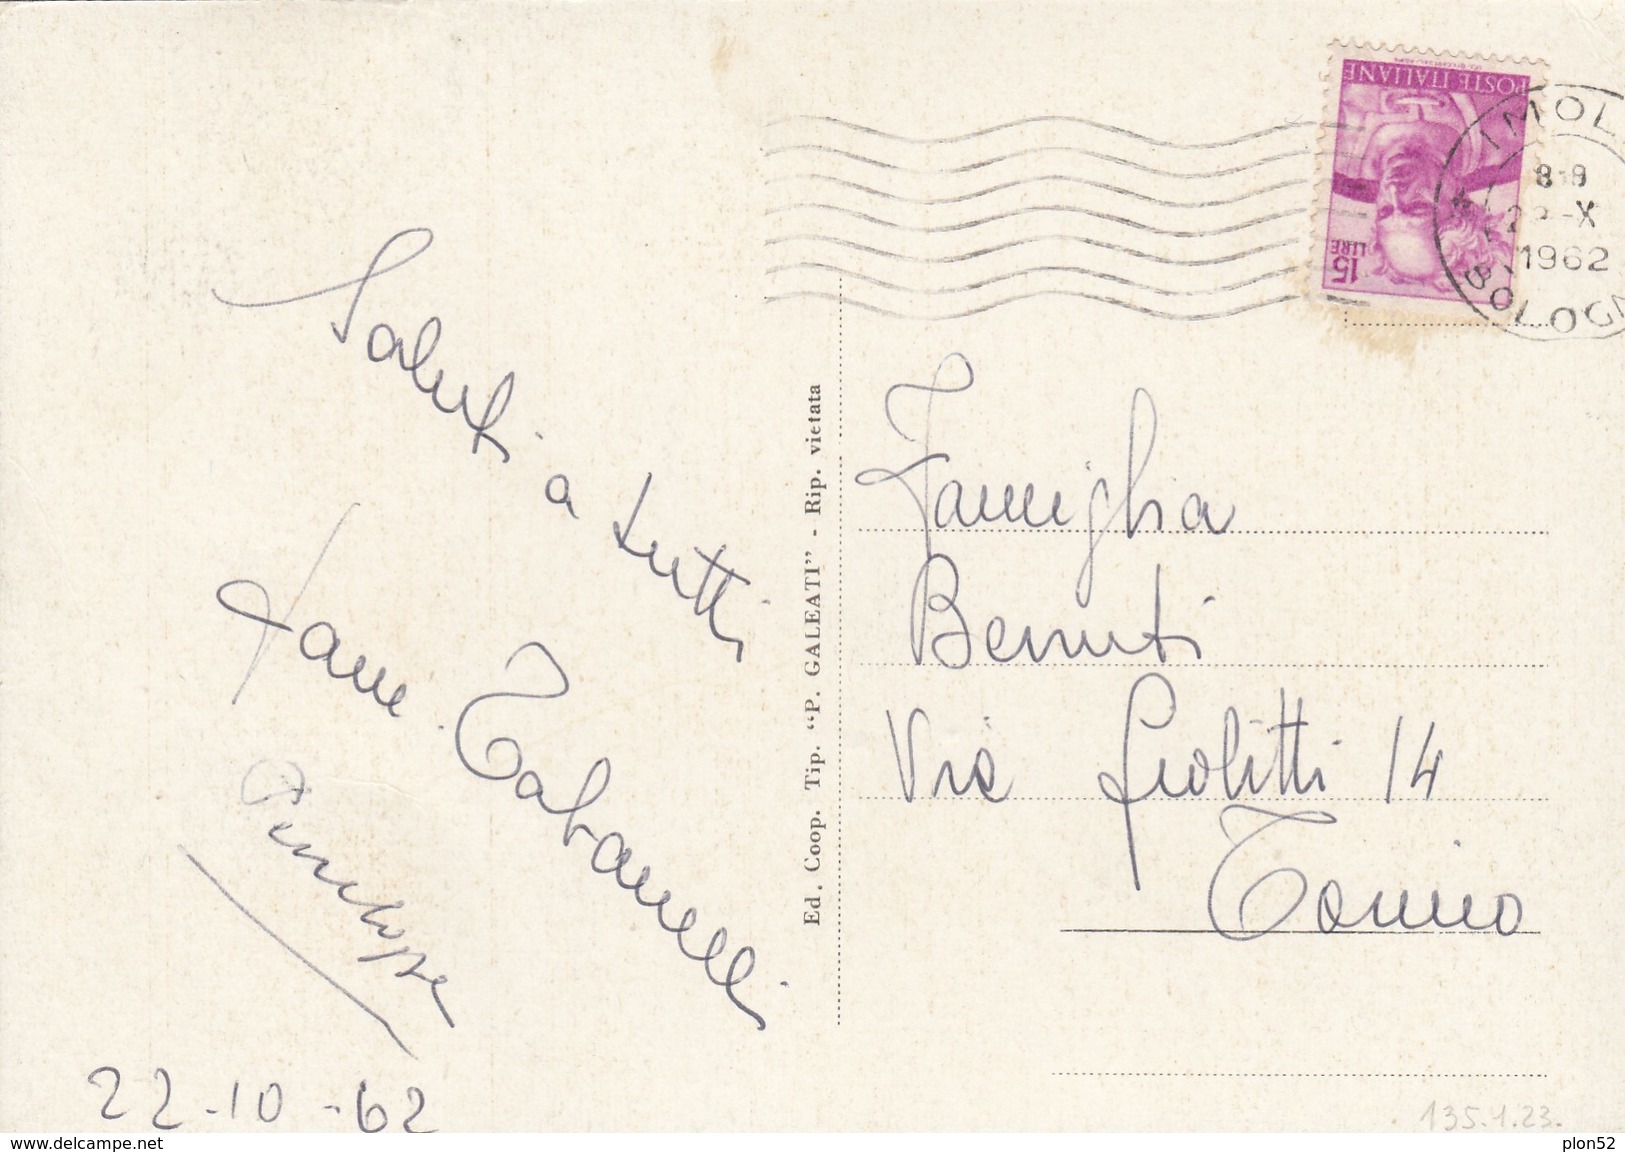 Saluti a tutti
Fam. Tabanelli
22-10-62
Ed. Coop. Tip. “P. GALEATI” - Rip. vietata
POSTE ITALIANE
15
LIRE
IMOL
8
-X
1962
BOLOGN
Famiglia
Benuti
Via Giolitti 14
Torino
135.1.23.
www.delcampe.net
plon52